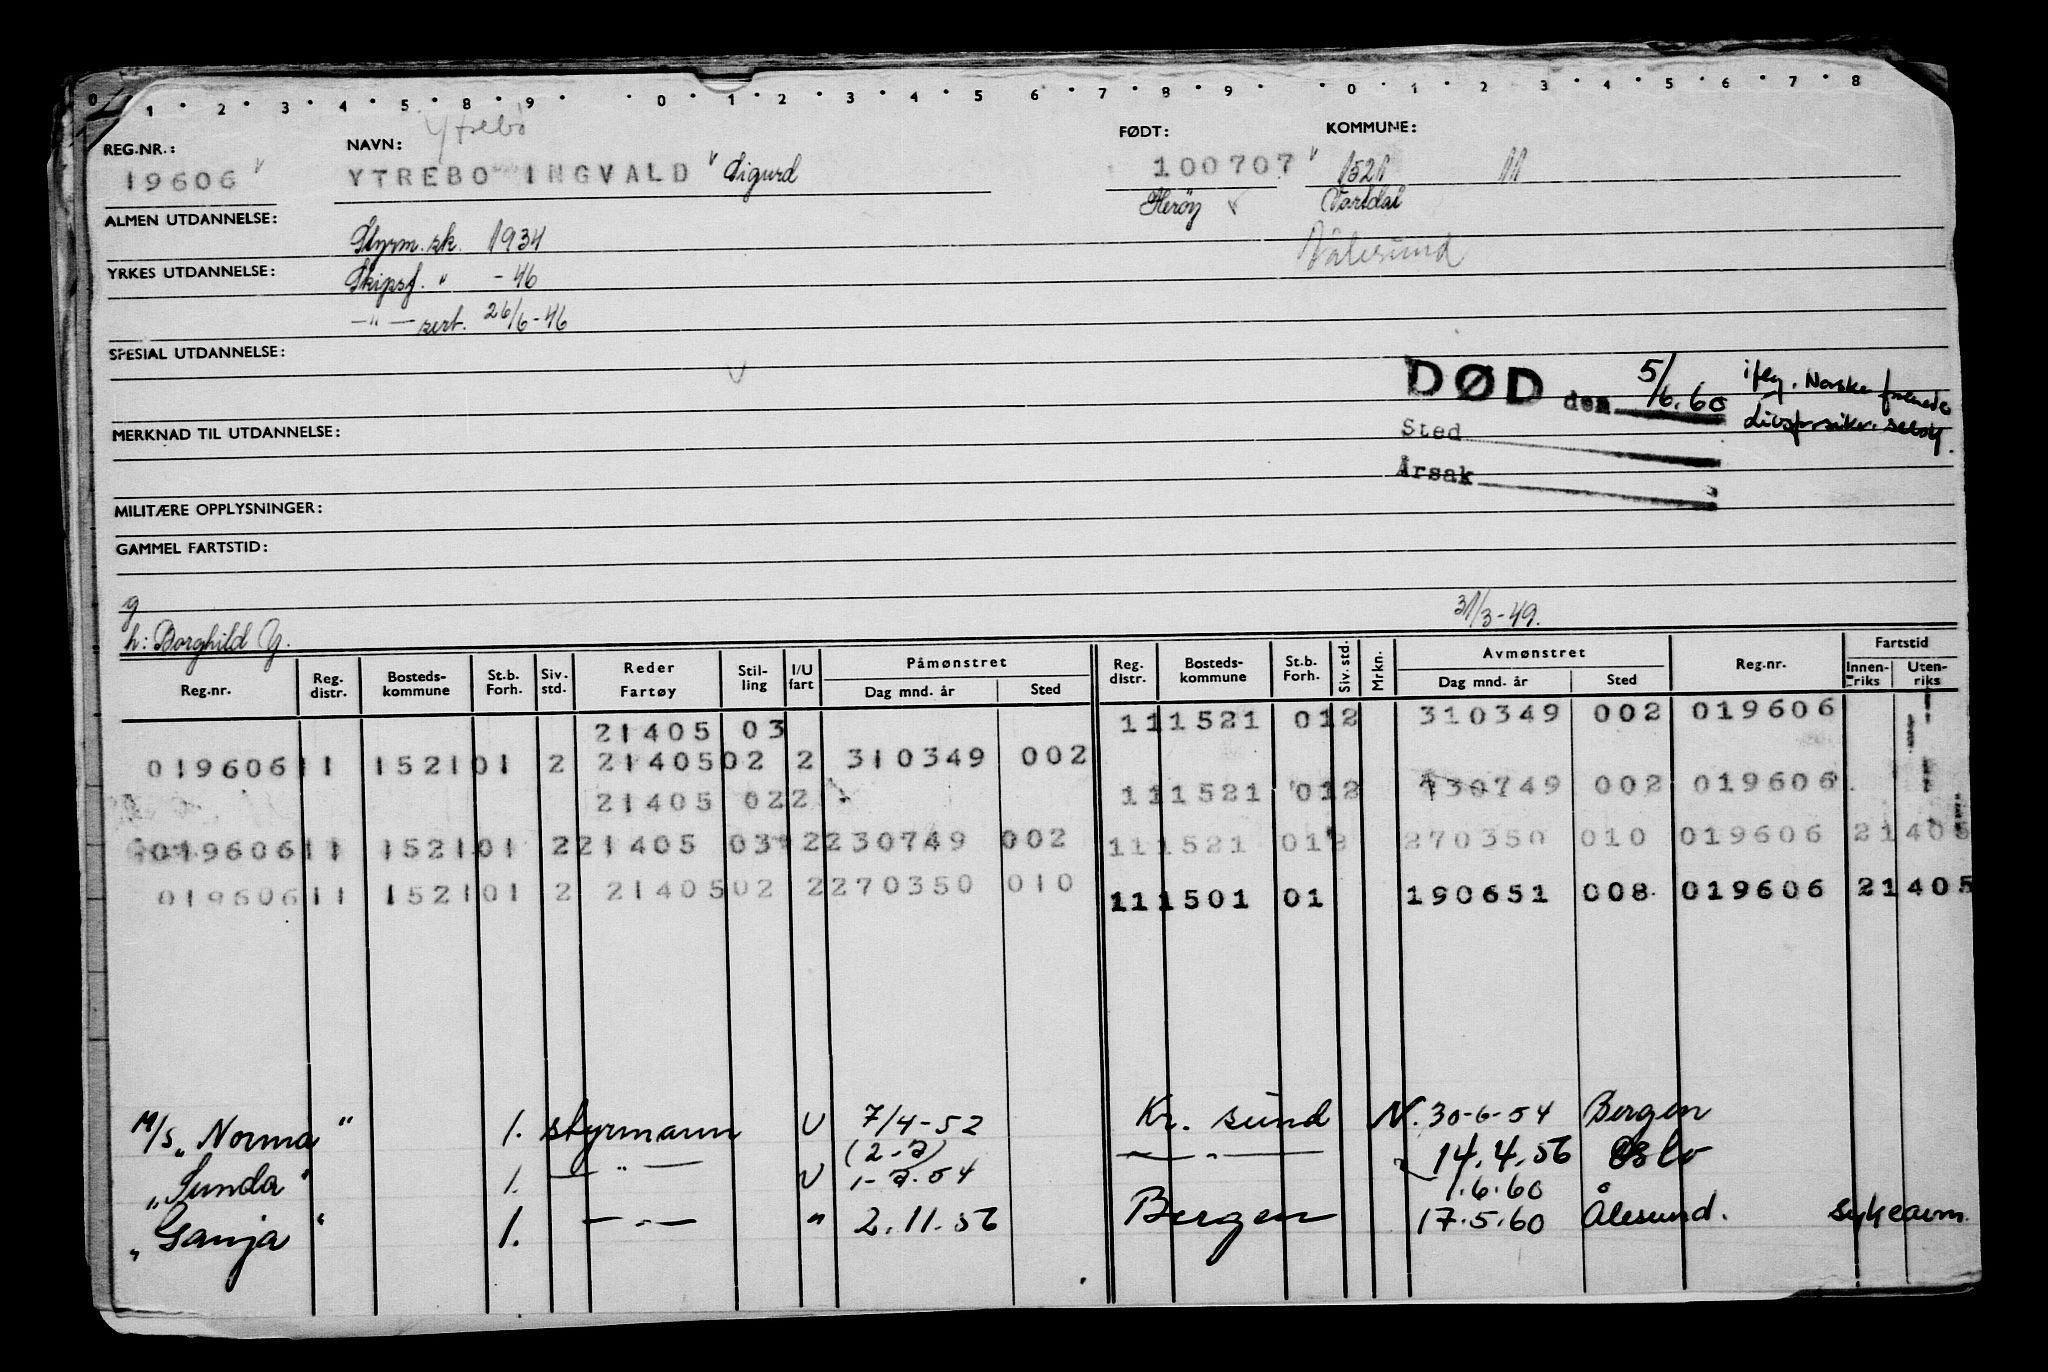 0 1 2 3 4 5 8 9 0 1 2 3 4 5 6 7 8 9 0 1 2 3 4 5 6 7 8
Ytrebø
REG.NR.: NAVN: FØDT: KOMMUNE:
19606 YTREBØ INGVALD Sigurd 100707 1521 11
Herøy Vartdal
ALMEN UTDANNELSE:
Styrm.sk. 1934
YRKES UTDANNELSE:
Skipsf. " -46
—"— sert. 26/6-46
SPESIAL UTDANNELSE:
DØD den 5/6.60 ifлg. Norske forenede
livsforsikr. selsk.
MERKNAD TIL UTDANNELSE:
Sted
Årsak
MILITÆRE OPPLYSNINGER:
GAMMEL FARTSTID:
g
31/3-49.
h: Borghild Y.
Reg.nr. Reg. distr. Bosteds-kommune St.b. Forh. Siv. std. Reder Fartøy Stil-ling I/U fart Påmønstret Dag mnd. år Sted Reg. distr. Bosteds-kommune St.b. Forh. Siv. std. Mrkn. Avmønstret Dag mnd. år Sted Reg.nr. Fartstid Innen-riks Uten-riks
21405 03 11 1521 01 2 310349 002 019606
019606 11 1521 01 2 21405 02 2 310349 002
21405 02 2 11 1521 01 2 230749 002 019606
019606 11 1521 01 2 21405 03 2 230749 002 11 1521 01 2 270350 010 019606 21405
019606 11 1521 01 2 21405 02 2 270350 010 11 1501 01 190651 008 019606 21405
M/S "Norma" 1. styrmann U 7/4-52 Kr. sund N. 30-6-54 Bergen
"Sunda" 1. —"— U (2-9) 1-9.54 —"— 14.4.56 Oslo
1.6.60
"Ganja" 1. —"— " 2.11.56 Bergen 17.5.60 Ålesund. sykeavm.